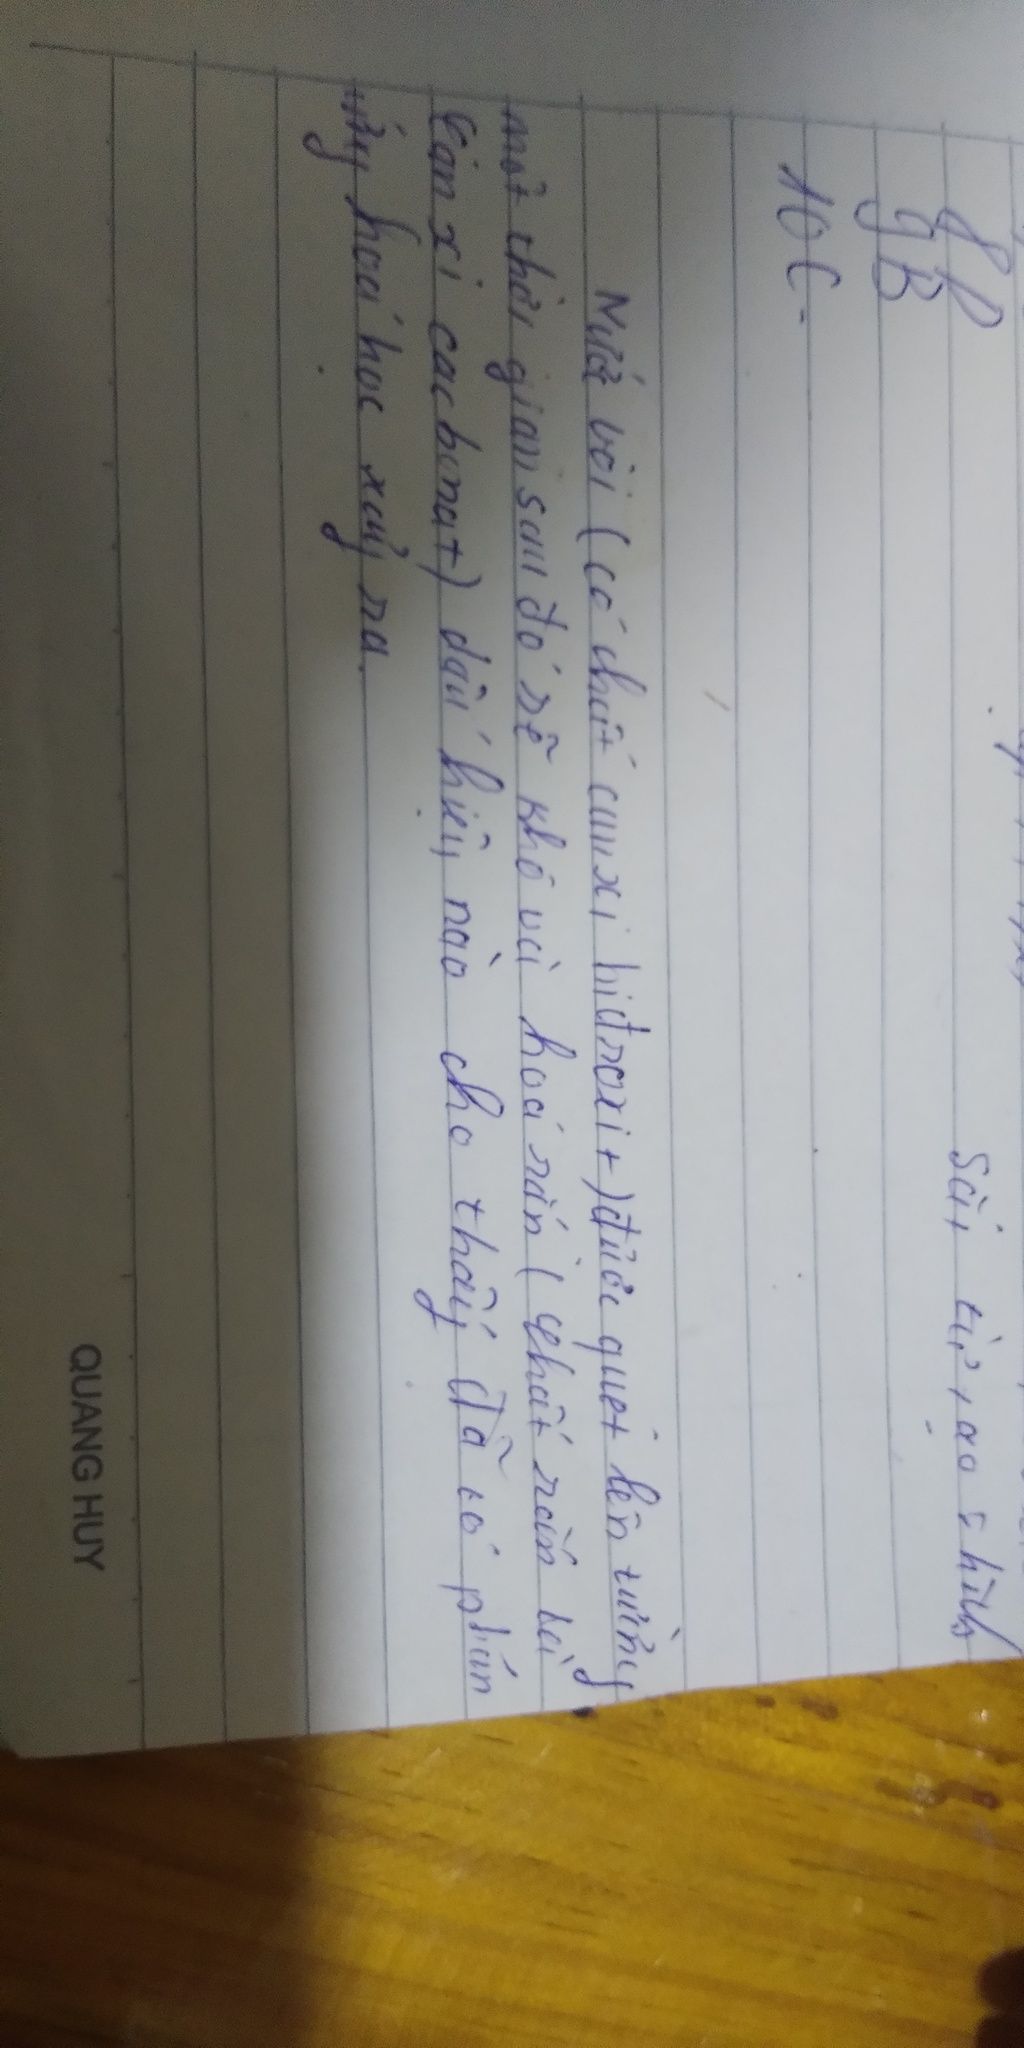 8B
9B
10C.
Sải, từ, ao,
Nước vôi (có chất canxi hiđroxit) được quét lên tường
một thời gian sau đó sẽ khô và hoá rắn (chất rắn là
canxi cacbonat) dấu hiệu nào cho thấy đã có phản
ứng hoá học xảy ra.
QUANG HUY